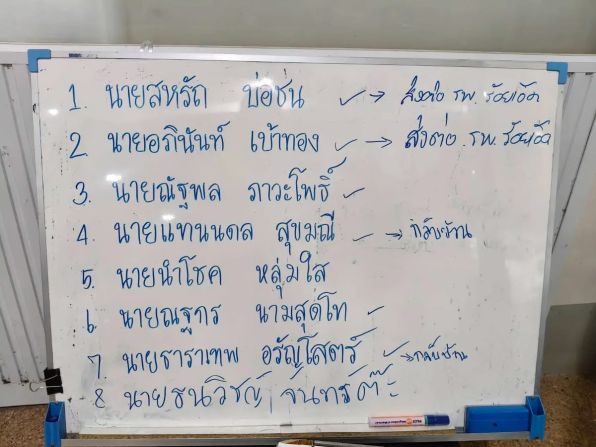 1. นายสหรัถ บ่อชน ✓ → ส่งต่อ รพ. ร้อยเอ็ด
2. นายอภินันท์ เบ้าทอง ✓ → ส่งต่อ รพ. ร้อยเอ็ด
3. นายณัฐพล ภาวะโพธิ์ ✓
4. นายแทนนดล สุขมณี ✓ → กลับบ้าน
5. นายนำโชค หลุ่มใส
6. นายณฐกร นามสุดโท ✓
7. นายธาราเทพ อรัญโสตร์ ✓ → กลับบ้าน
8. นายธนวิชญ์ จันทร์ต๊ะ